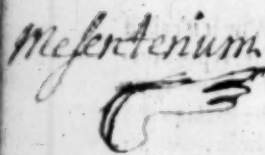 Meſenterium.